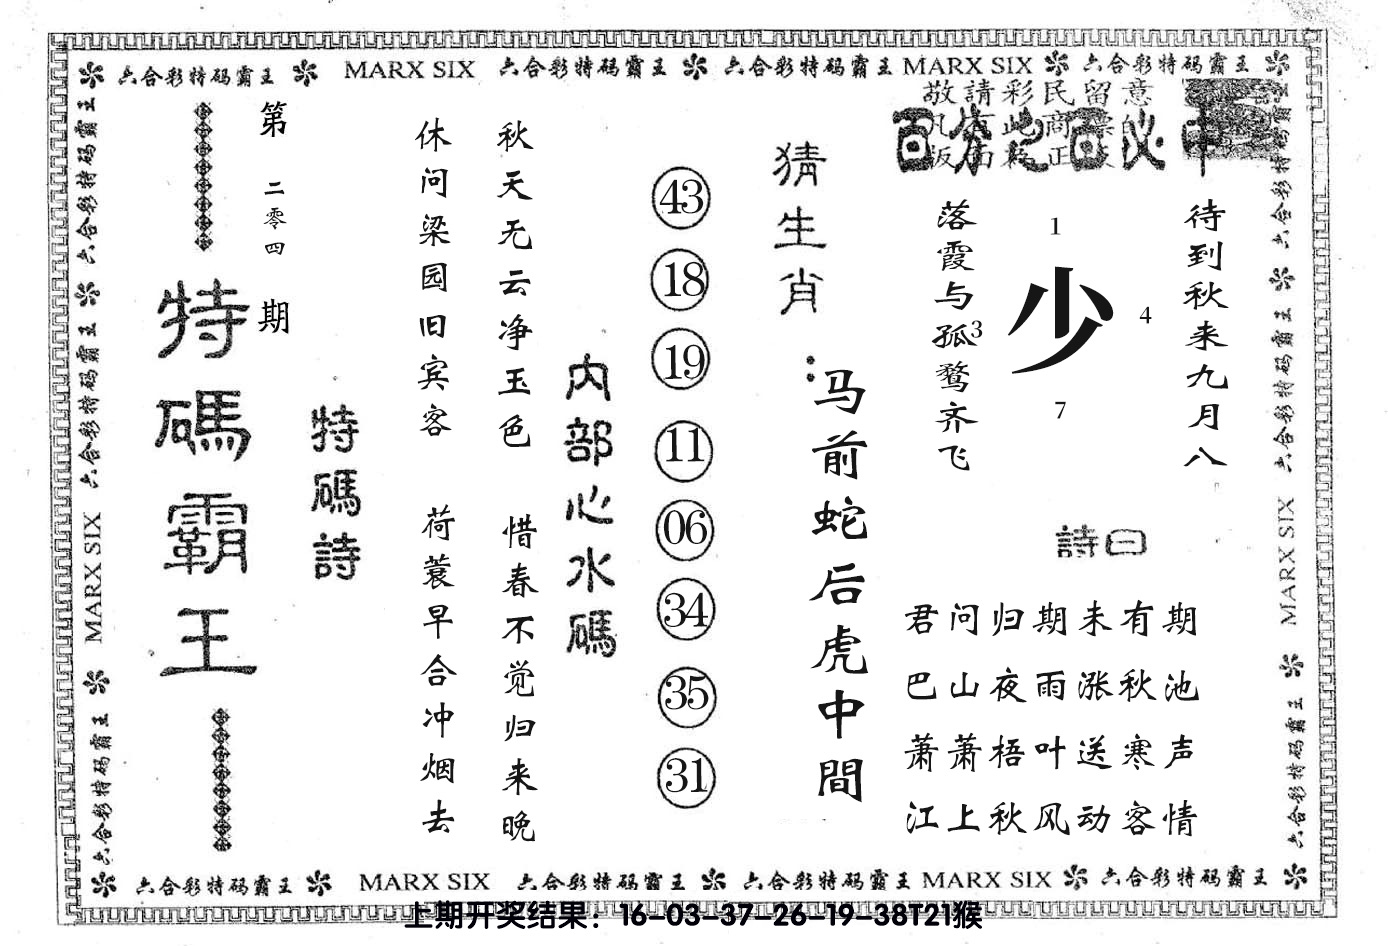 六合彩特码霸王 MARX SIX 六合彩特码霸王 六合彩特码霸王 MARX SIX 六合彩特码霸王
敬請彩民留意
百分之百必中
第二零四期
特碼霸王
特碼詩
休问梁园旧宾客
荷蓑早合冲烟去
秋天无云净玉色
惜春不觉归来晚
内部心水碼
43
18
19
11
06
34
35
31
猜生肖：
马前蛇后虎中間
落霞与孤鹜齐飞
1
少
3
4
7
待到秋来九月八
詩曰
君问归期未有期
巴山夜雨涨秋池
萧萧梧叶送寒声
江上秋风动客情
六合彩特码霸王 MARX SIX 六合彩特码霸王
六合彩特码霸王 MARX SIX 六合彩特码霸王
六合彩特码霸王 MARX SIX 六合彩特码霸王 六合彩特码霸王 MARX SIX 六合彩特码霸王
上期开奖结果：16-03-37-26-19-38T21猴